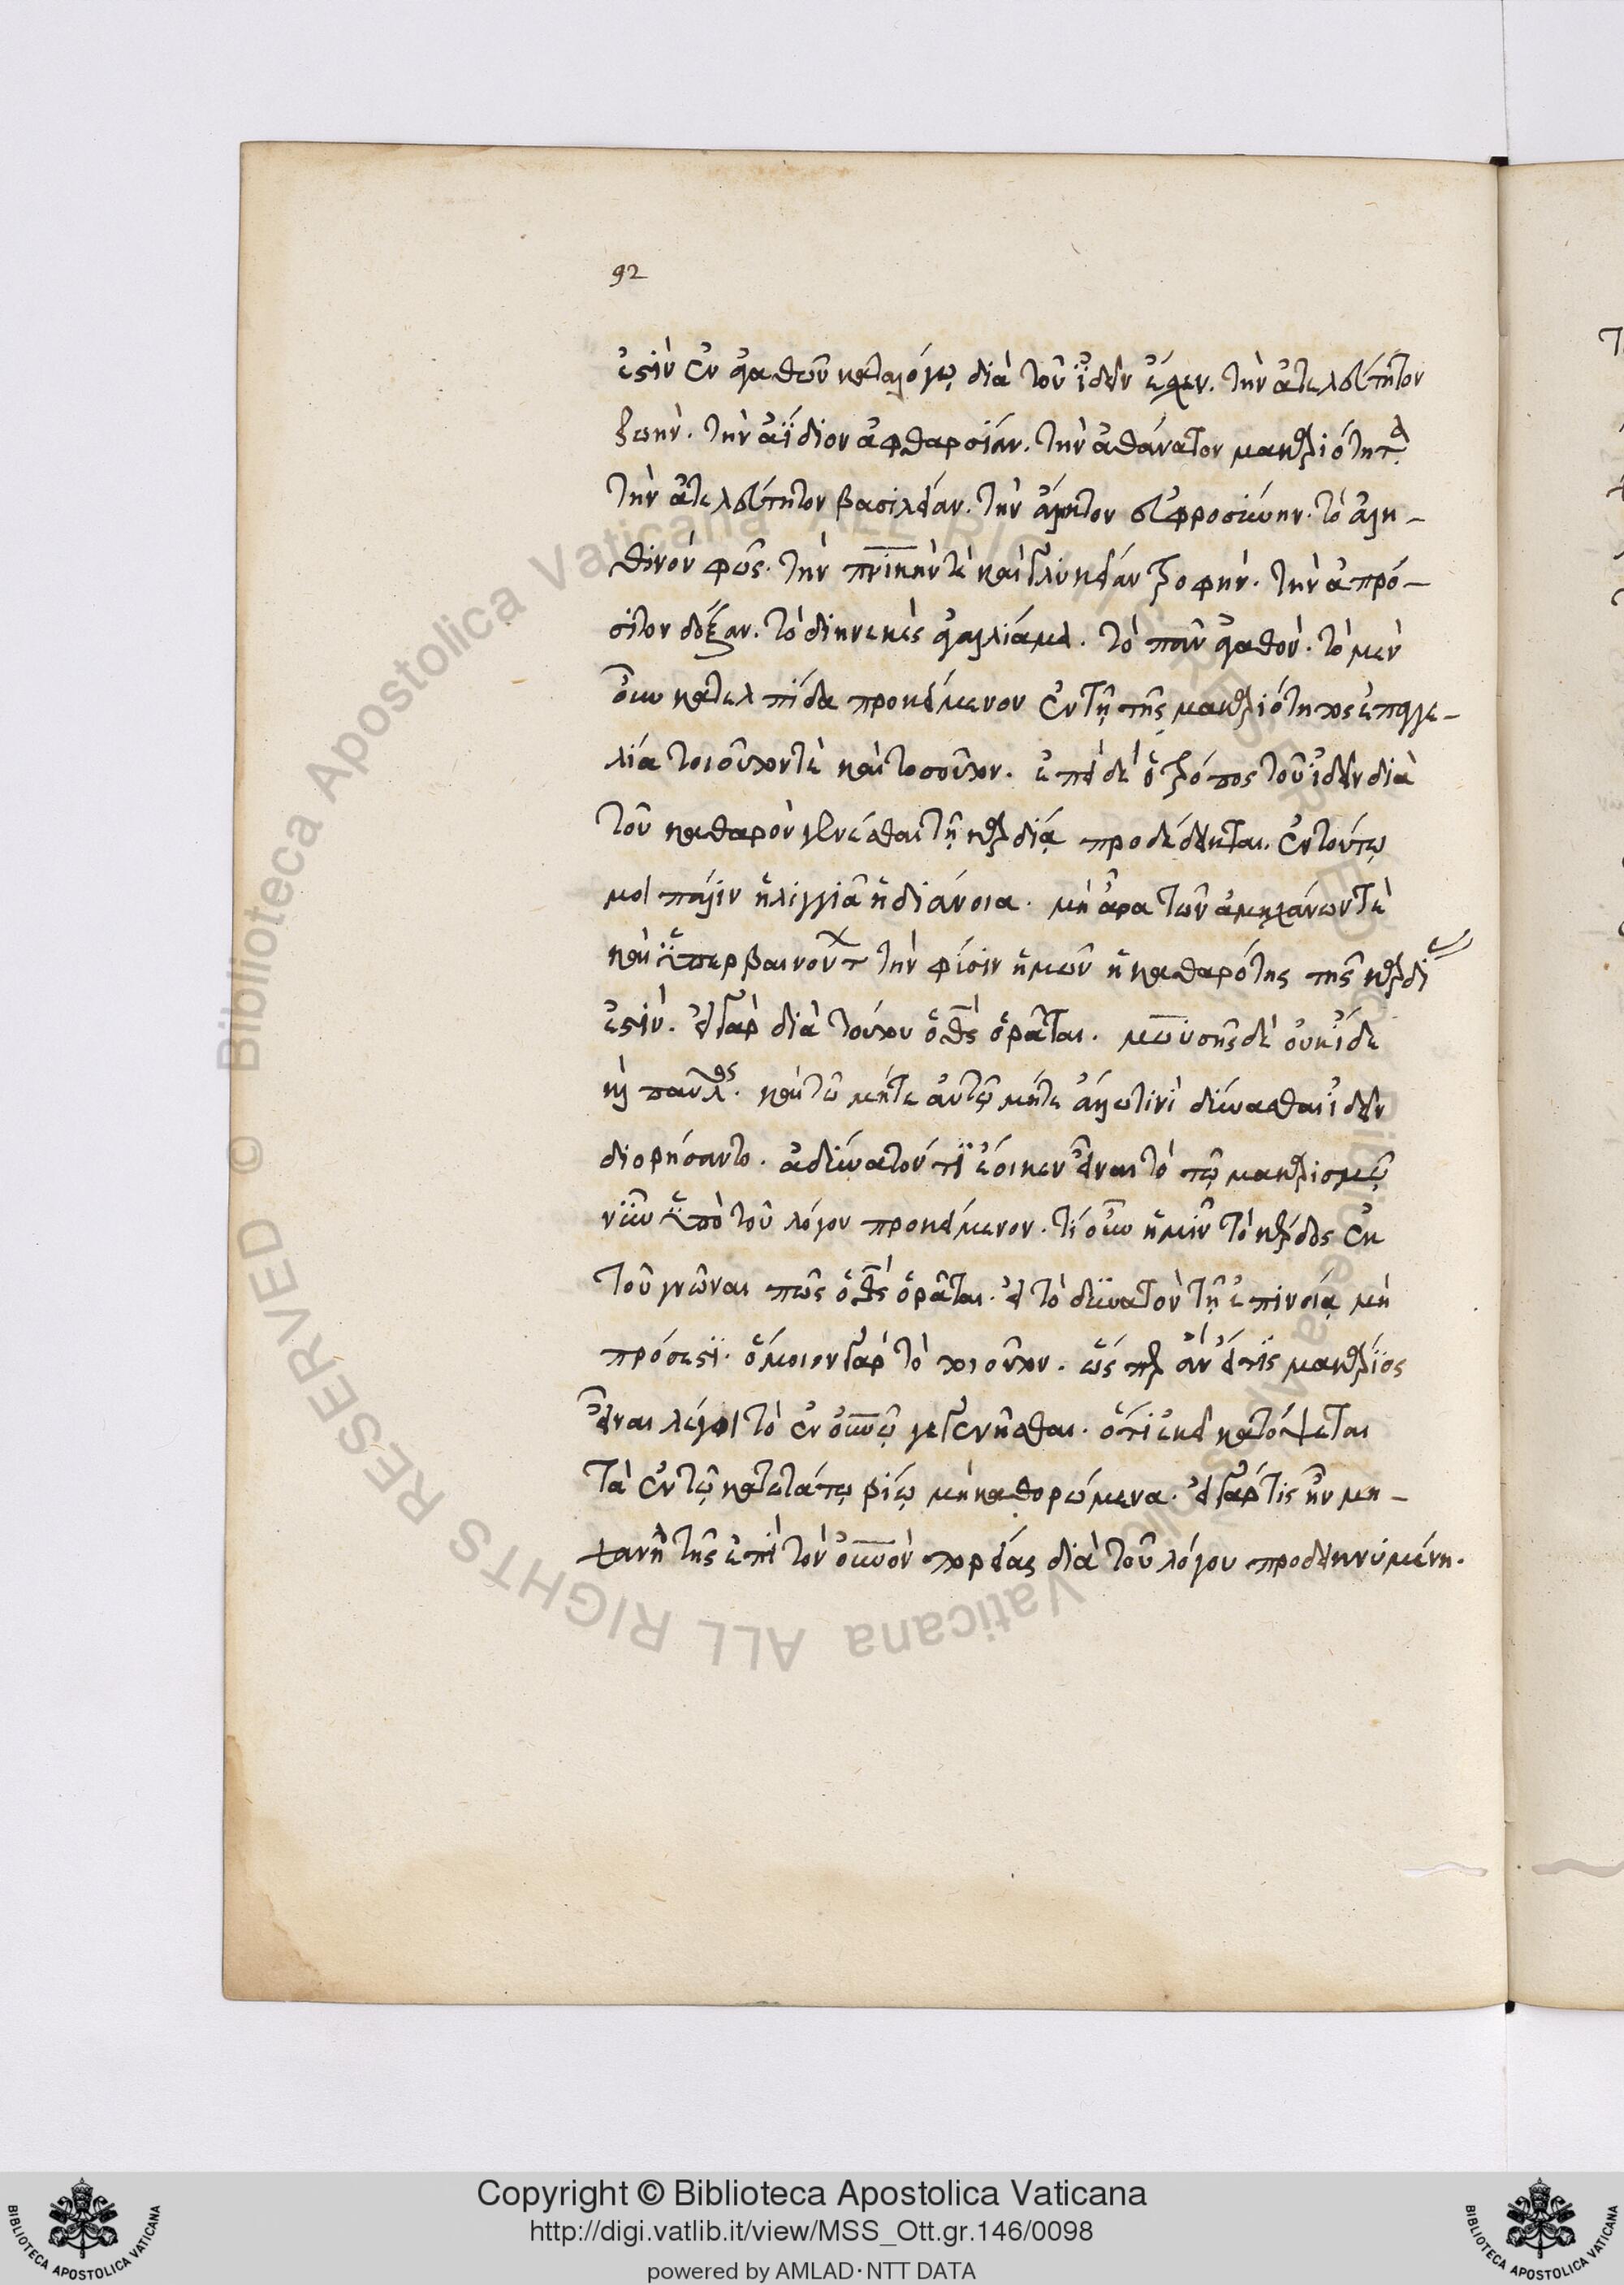 92
ἐστὶν ἐν ἀγαθῶν καταλόγῳ διὰ τοῦ ἰδεῖν ἔχειν. τὴν ἀτελεύτητον
ζωὴν. τὴν ἀΐδιον ἀφθαρσίαν. τὴν ἀθάνατον μακαριότητα
τὴν ἀτελεύτητον βασιλείαν. τὴν ἄληκτον εὐφροσύνην. τὸ ἀλη-
θινὸν φῶς. τὴν πνικὴν τὲ καὶ γλυκεῖαν τροφήν. τὴν ἀπρό-
σιτον δόξαν. τὸ διηνεκὲς ἀγαλλίαμα. τὸ πᾶν ἀγαθὸν. τὸ μὲν
οὖν κατελπίδα προκείμενον ἐν τῇ τῆς μακαριότητος ἐπαγγε-
λία τοιοῦτον τὲ καὶ τοσοῦτον. ἐπεὶ δὲ ὁ τρόπος τοῦ ἰδεῖν διὰ
τοῦ καθαρὸν γενέσθαι τῇ καρδίᾳ προδέδεικται. ἐν τούτῳ
μοι πάλιν ἠλιγγιᾶ ἡ διάνοια. μὴ ἄρα τῶν ἀμηχάνων τὲ
καὶ ὑπερβαινοντ τὴν φύσιν ἡμῶν ἡ καθαρότης τῆς καρδί
ἐστίν. εἰ γὰρ διὰ τούτου ὁ θς ὁρᾶται. μωϋσῆς δὲ οὐκ ἶδε
καὶ παῦλος. καὶ τῶ μήτε αὐτῷ μήτε ἄλλω τινὶ δύνασθαι ἰδεῖν
διορήσαντο. ἀδύνατόν τι ἔοικεν εἶναι τὸ τῷ μακαρισμῷ
νῦν ὑπὸ τοῦ λόγου προκείμενον. τί οὖν ἡμῖν τὸ κέρδος ἐκ
τοῦ γνῶναι πῶς ὁ θς ὁρᾶται. εἰ τὸ δυνατὸν τῇ ἐπινοίᾳ μὴ
πρόσεστι. ὅμοιον γὰρ τὸ τοιοῦτον. ὥς περ ἂν εἴ τις μακάριος
εἶναι λέγει τὸ ἐν οὐνῷ γεγενῆσθαι. ὅτι ἐκεῖ κατόψεται
τὰ ἐν τῷ κατωτάτῳ βίῳ μὴ καθορώμενα. εἰ γάρ τις ἦν μη-
χανὴ τῆς ἐπὶ τὸν οὐνὸν πορείας διὰ τοῦ λόγου προδεικνυμένη.
Copyright © Biblioteca Apostolica Vaticana
http://digi.vatlib.it/view/MSS_Ott.gr.146/0098
powered by AMLAD·NTT DATA